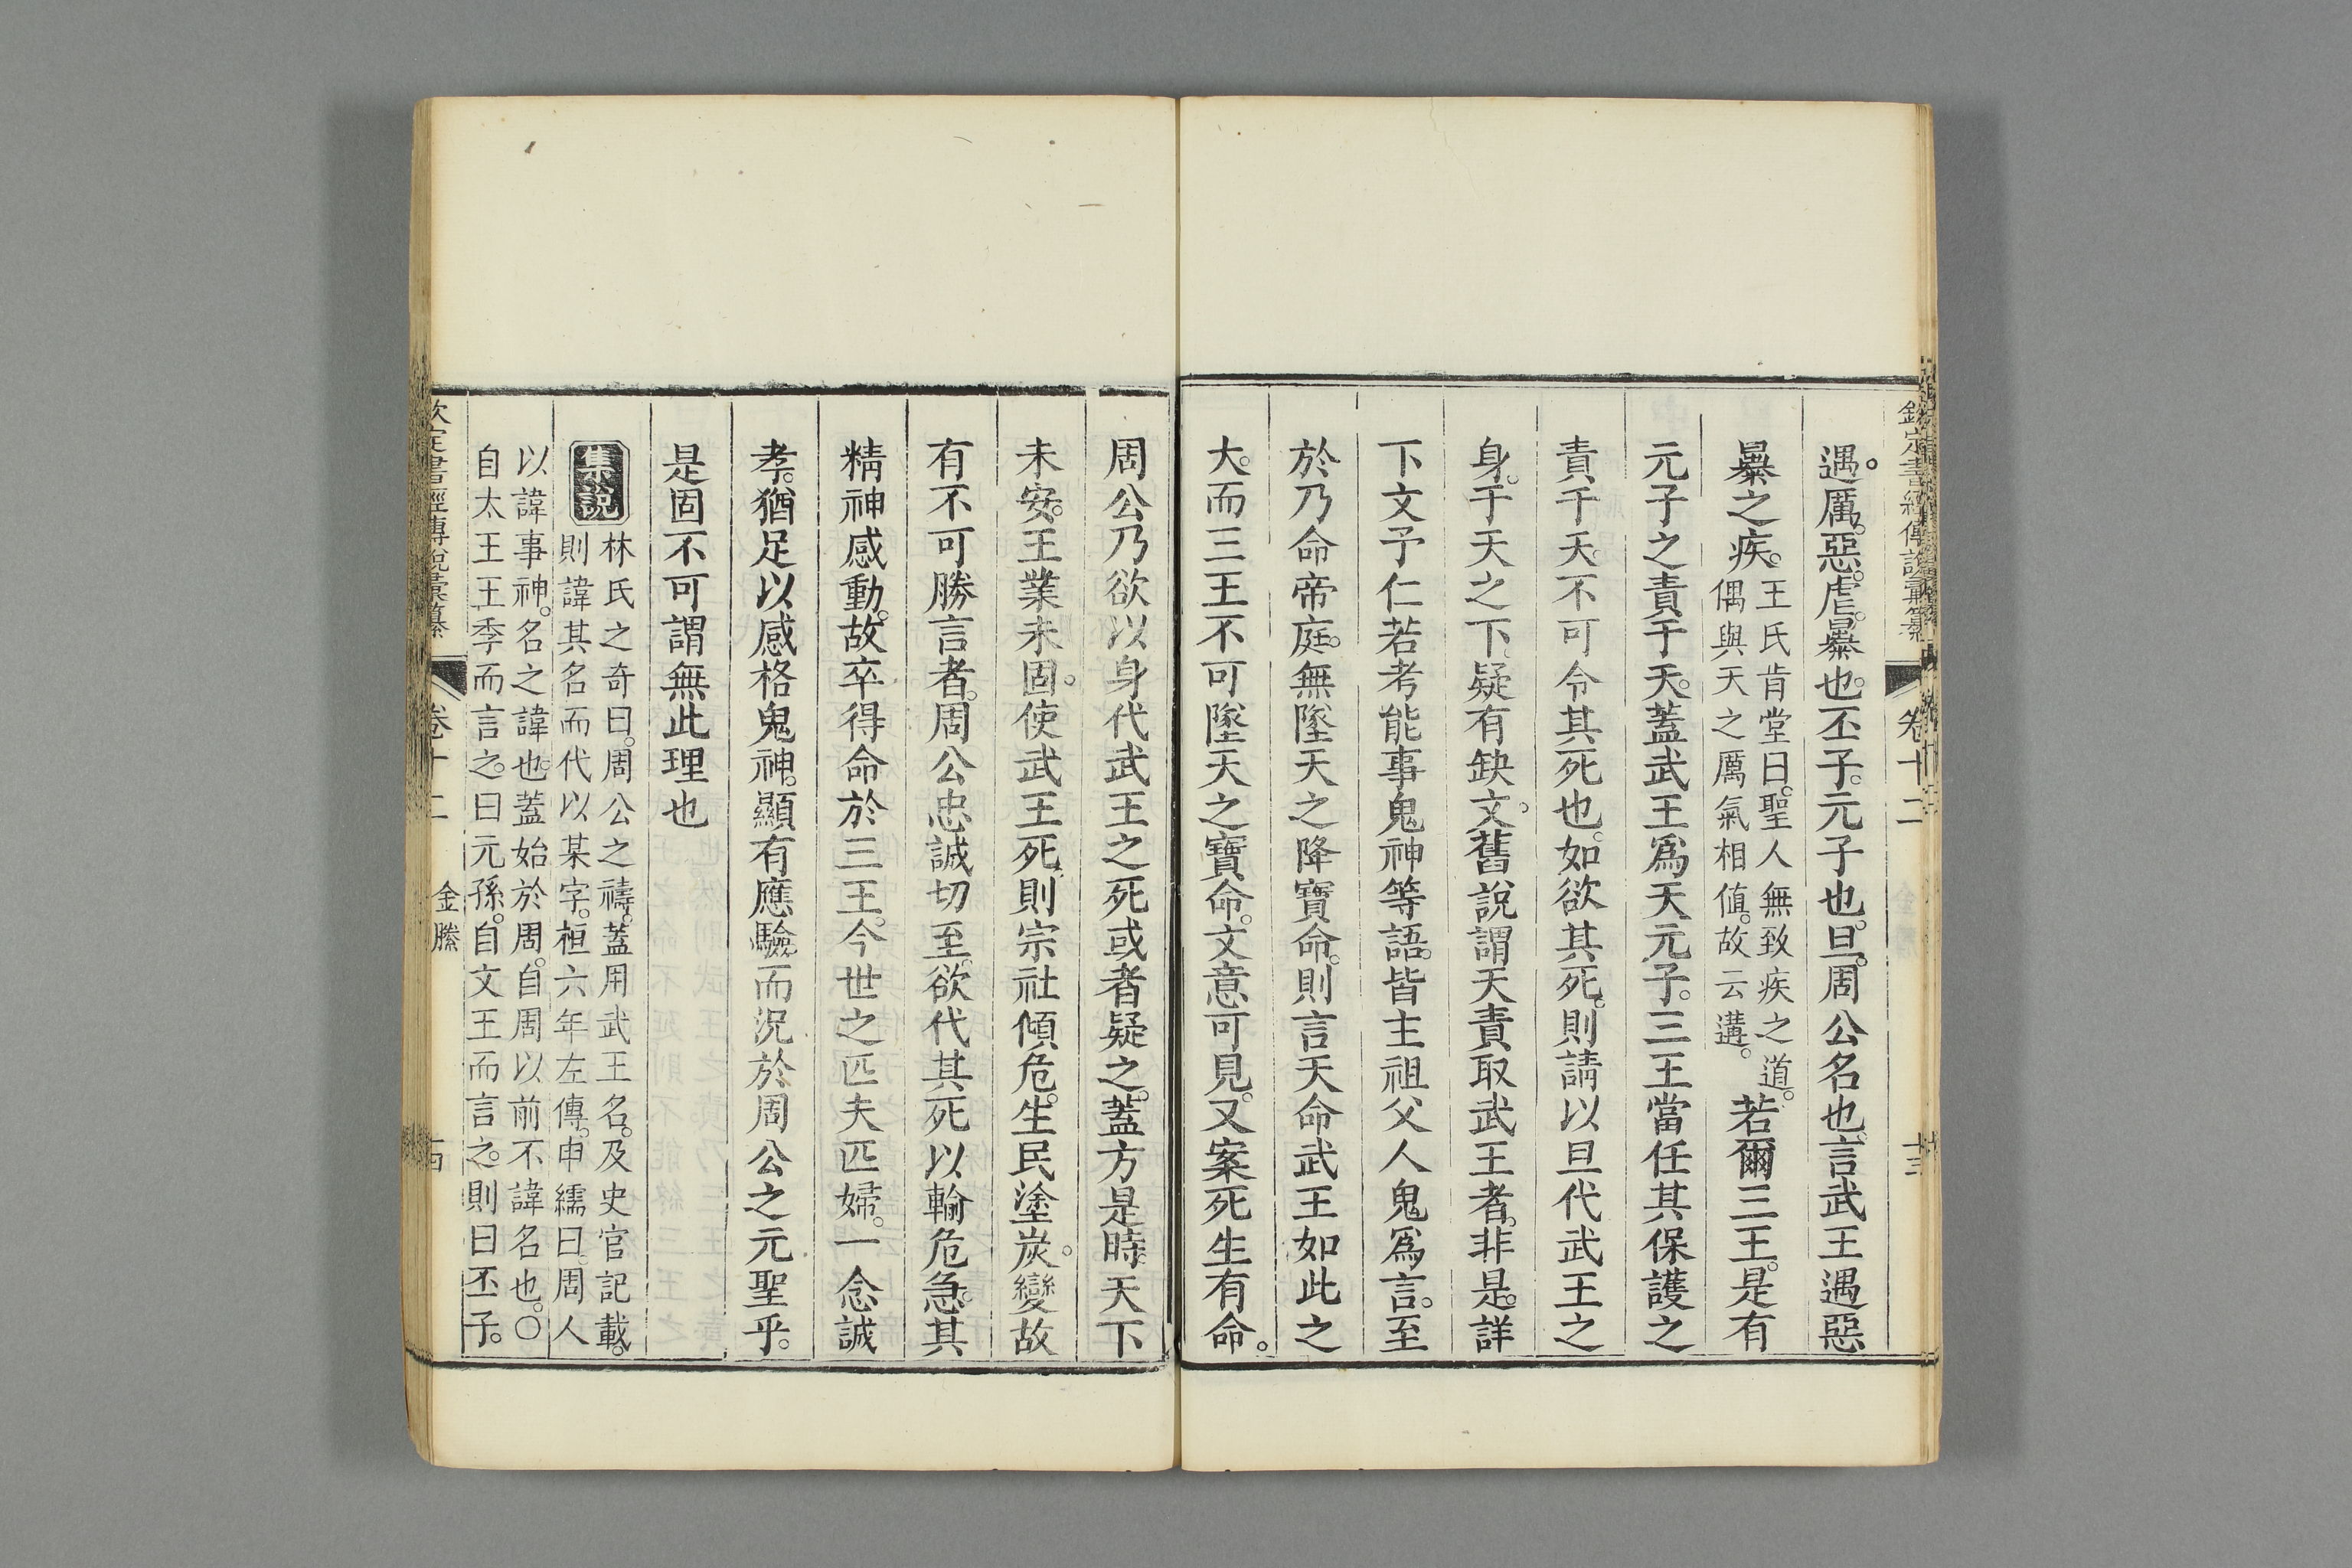 欽定書經傳說彙纂
卷十二
十三
遇。厲。惡。虐。㬥也。丕子。元子也。旦。周公名也。言武王遇惡
㬥之疾。
王氏肯堂曰。聖人無致疾之道。
偶與天之厲氣相値。故云遘。
若爾三王。是有
元子之責于天。蓋武王爲天元子。三王當任其保護之
責于天。不可令其死也。如欲其死。則請以旦代武王之
身。于天之下。疑有缺文。舊說謂天責取武王者。非是。詳
下文予仁若考能事鬼神等語。皆主祖父人鬼爲言。至
於乃命帝庭。無墜天之降寶命。則言天命武王如此之
大。而三王不可墜天之寶命。文意可見。又案死生有命。
周公乃欲以身代武王之死。或者疑之。蓋方是時。天下
未安。王業未固。使武王死。則宗社傾危。生民塗炭。變故
有不可勝言者。周公忠誠切至。欲代其死以輸危急。其
精神感動。故卒得命於三王。今世之匹夫匹婦。一念誠
孝。猶足以感格鬼神。顯有應驗。而況於周公之元聖乎。
是固不可謂無此理也
集說
林氏之奇曰。周公之禱。蓋用武王名。及史官記載。
則諱其名而代以某字。桓六年左傳。申繻曰。周人
以諱事神。名之諱也。蓋始於周。自周以前不諱名也。○
自太王王季而言之。曰元孫。自文王而言之。則曰丕子。
欽定書經傳說彙纂
卷十二
金縢
十四